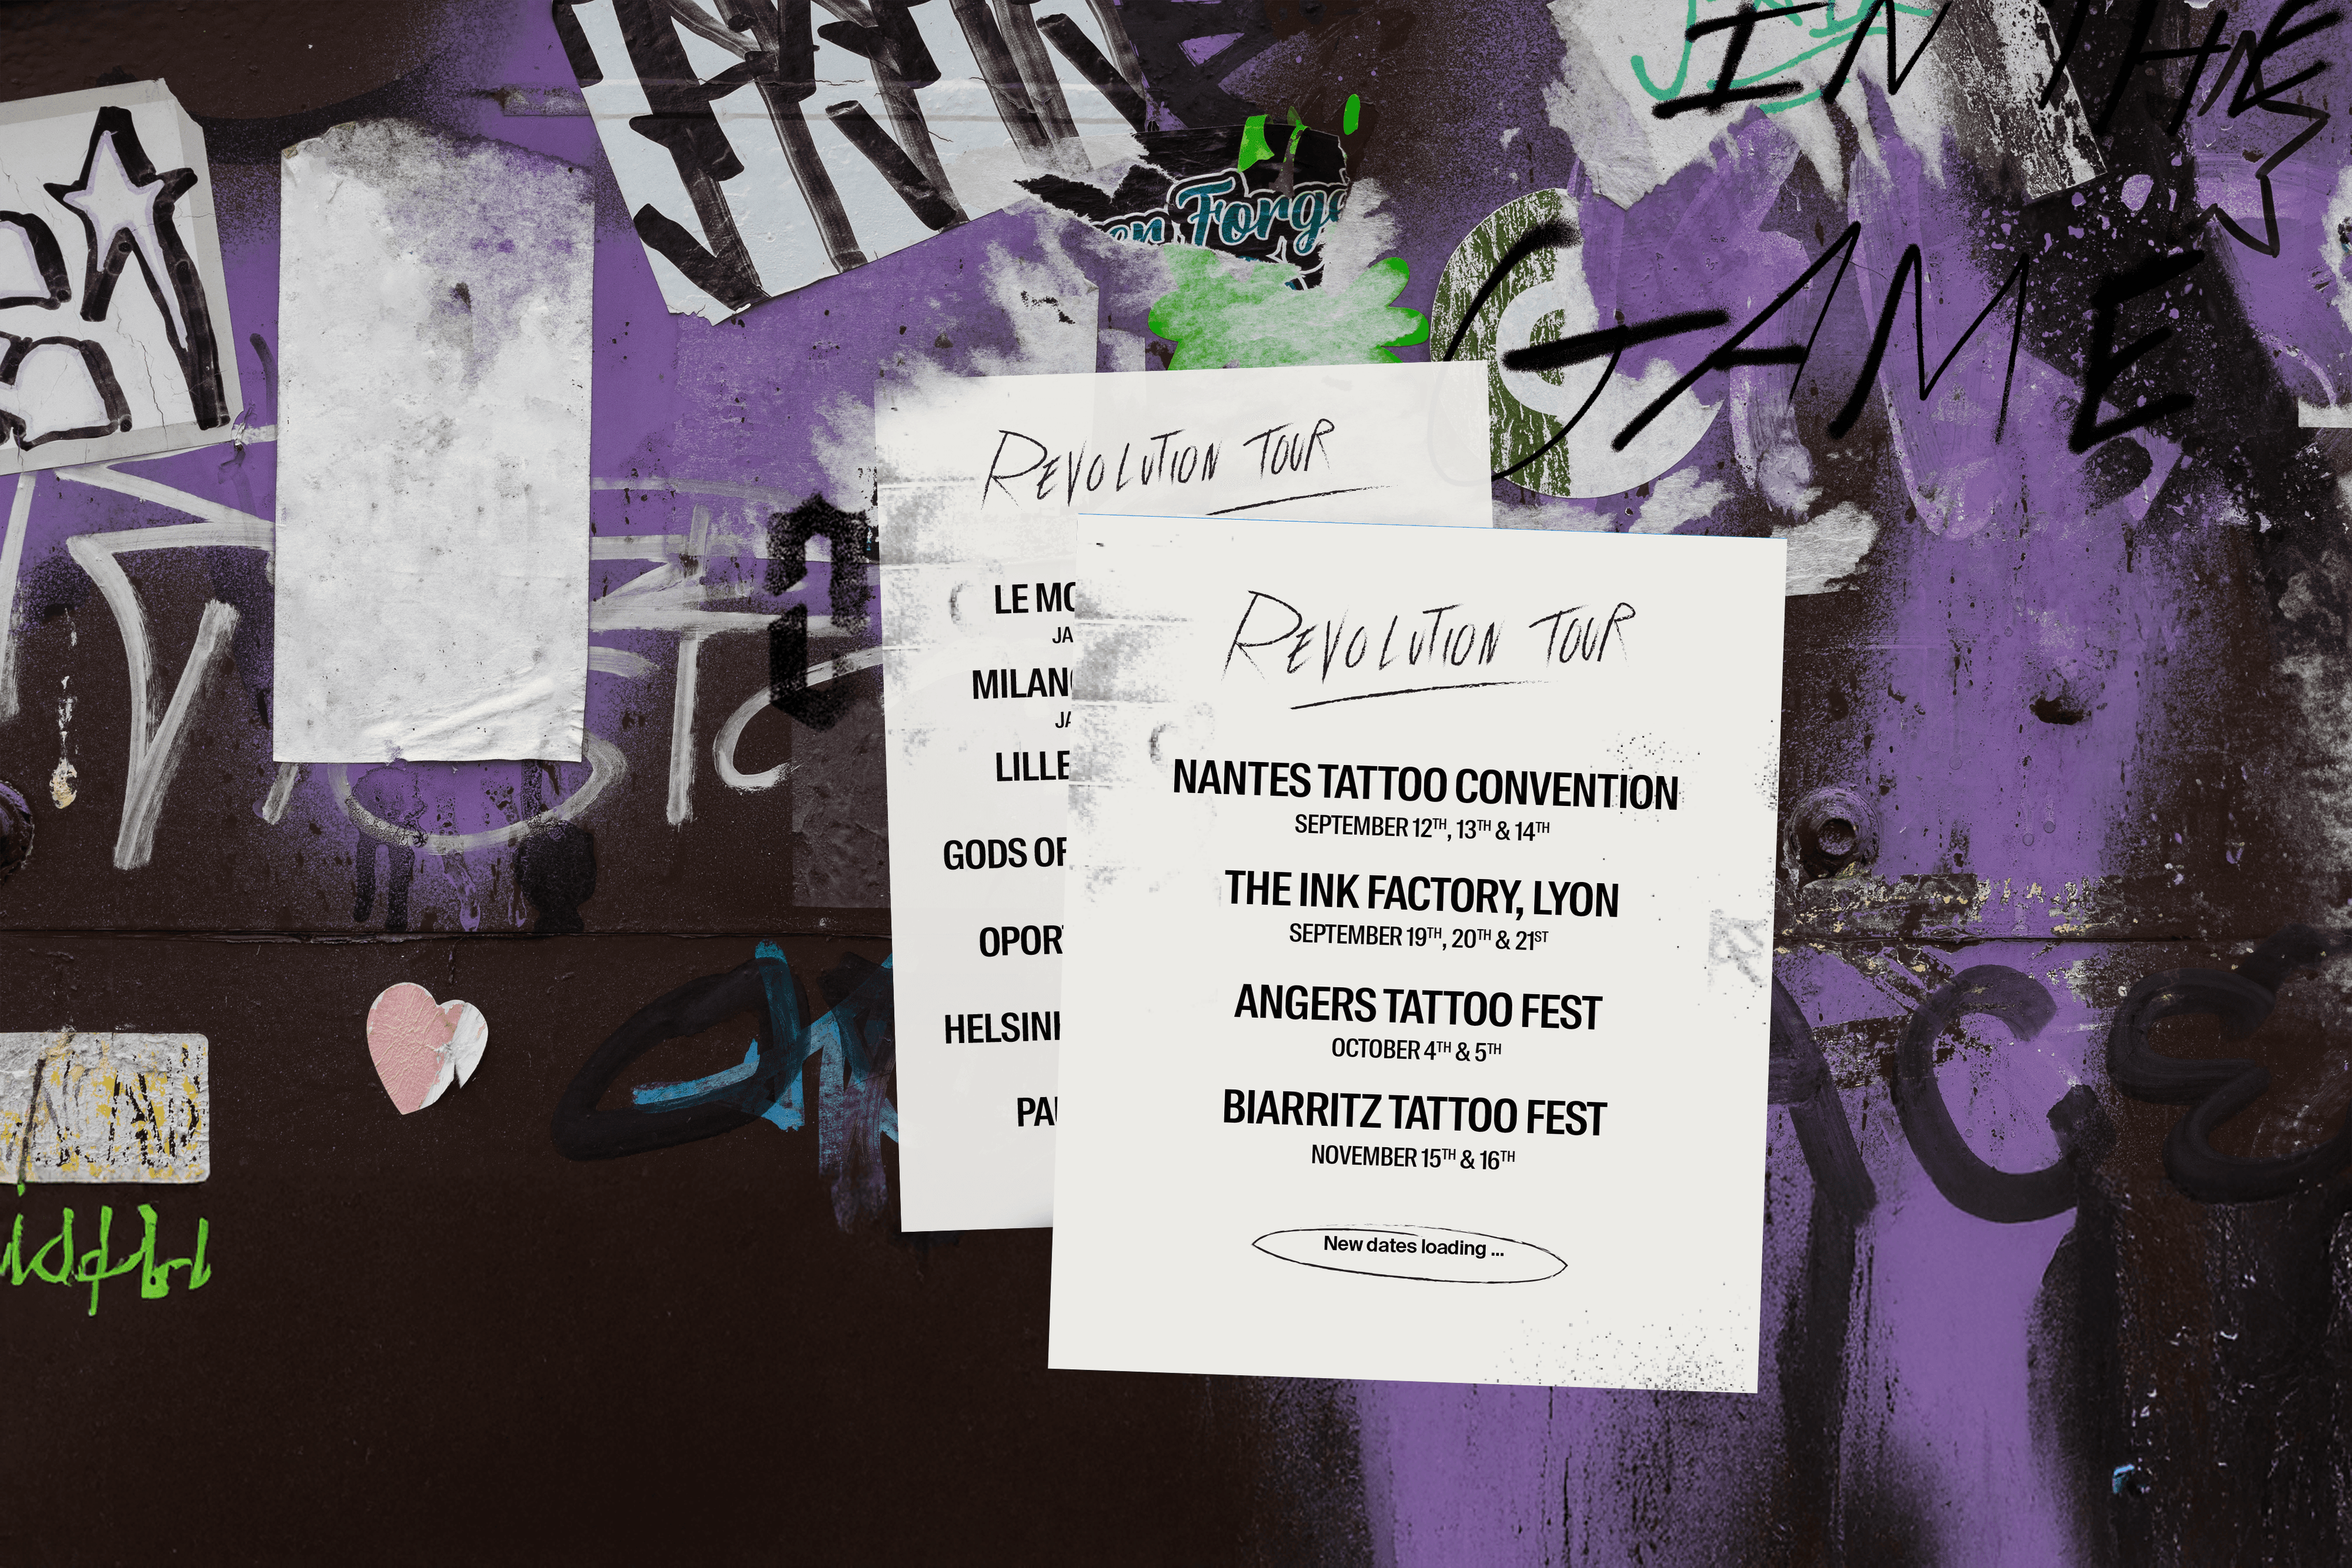 IN THE
GAME
Forg
REVOLUTION TOUR
LE MO
JA
MILAN
JA
LILLE
GODS OF
OPOR
HELSIN
PA
REVOLUTION TOUR
NANTES TATTOO CONVENTION
SEPTEMBER 12TH, 13TH & 14TH
THE INK FACTORY, LYON
SEPTEMBER 19TH, 20TH & 21ST
ANGERS TATTOO FEST
OCTOBER 4TH & 5TH
BIARRITZ TATTOO FEST
NOVEMBER 15TH & 16TH
New dates loading ...